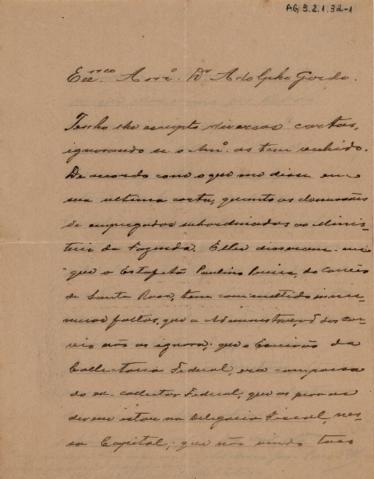 AG 5.2.1.32-1
Exmo. Amo. Dr. Adolpho Gordo.
Tenho lhe escripto diversas cartas,
ignorando se o Amo. as tem recebido.
De accordo com o que me disse em
sua ultima carta, quanto as demissões
de empregados subordinados ao Minis-
terio da Fazenda. Elles disseram-me
que o Estafeta Paulino, do correio
de Santa Rosa, tem commettido innu-
meras faltas, que a Administração dos cor-
reios não as ignora; que o Escrivão da
Collectoria Federal, era
do ex collector Federal, que as provas
devem estar na Delegacia Fiscal, nes-
sa Capital; que não